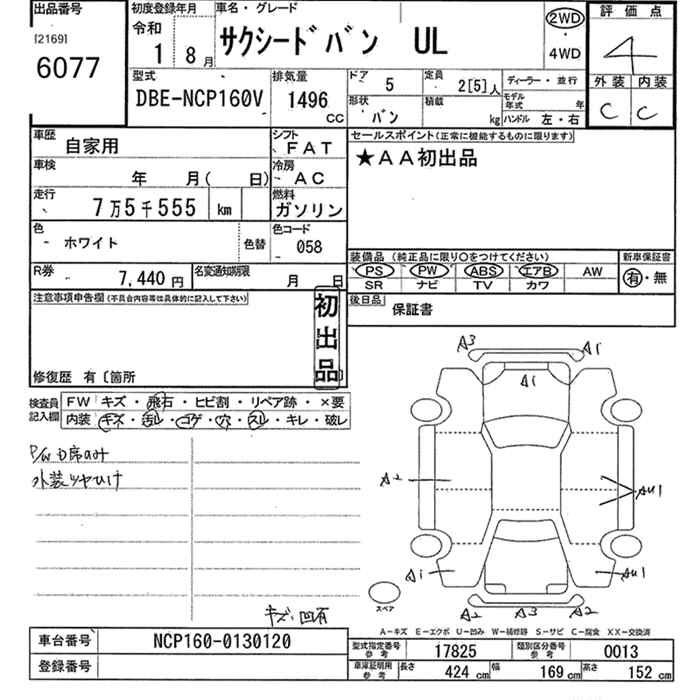 出品番号 初度登録年月 車名・グレード 2WD 評価点
[2169] 令和 サクシードバン UL 4
6077 1 8月 4WD
外装 内装
C C
型式 排気量 ドア 5 定員 2[5]人 ディーラー・並行
DBE-NCP160V 1496 CC 形状 バン 積載 kg モデル年式 年
ハンドル 左・右
車歴 自家用 シフト FAT セールスポイント(正常に機能するものに限ります)
車検 年 月( 日) 冷房 AC ★AA初出品
走行 7万5千555 km 燃料 ガソリン
色 ホワイト 色替 色コード 058
装備品(純正品に限り○をつけてください) 新車保証書
PS PW ABS エアB AW 有・無
SR ナビ TV カワ
R券 7,440円 名変通知期限 月 日
後日品 保証書
注意事項申告欄(不具合内容等は具体的に記入して下さい)
初出品
修復歴 有〔箇所
検査員記入欄 FW キズ・飛石・ヒビ割・リペア跡・×要
内装 キズ・汚レ・コゲ・穴・スレ・キレ・破レ
P/W D席のみ
外装ツヤひけ
キズ、凹有
A3 A1
A1
A2 AU1
A1 AU1
A2 A3 A2
スペア
A-キズ E-エクボ U-凹み W-補修跡 S-サビ C-腐食 XX-交換済
車台番号 NCP160-0130120 型式指定番号 参考 17825 類別区分番号 参考 0013
登録番号 車庫証明用 参考 長さ 424 cm 幅 169 cm 高さ 152 cm